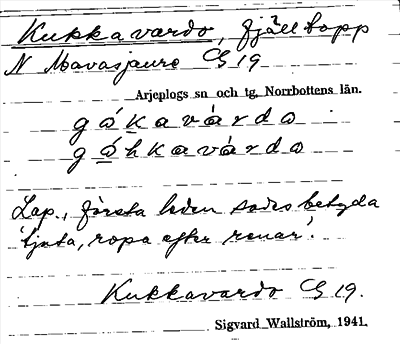 Kukkavardo, fjälltopp
N Mavasjaure CS 19
Arjeplogs sn och tg, Norrbottens län.
gåkavárdo
gåhkavárdo
Lap., första leden sades betyda
'tjuta, ropa efter renar'.
Kukkavardo CS 19.
Sigvard Wallström, 1941.